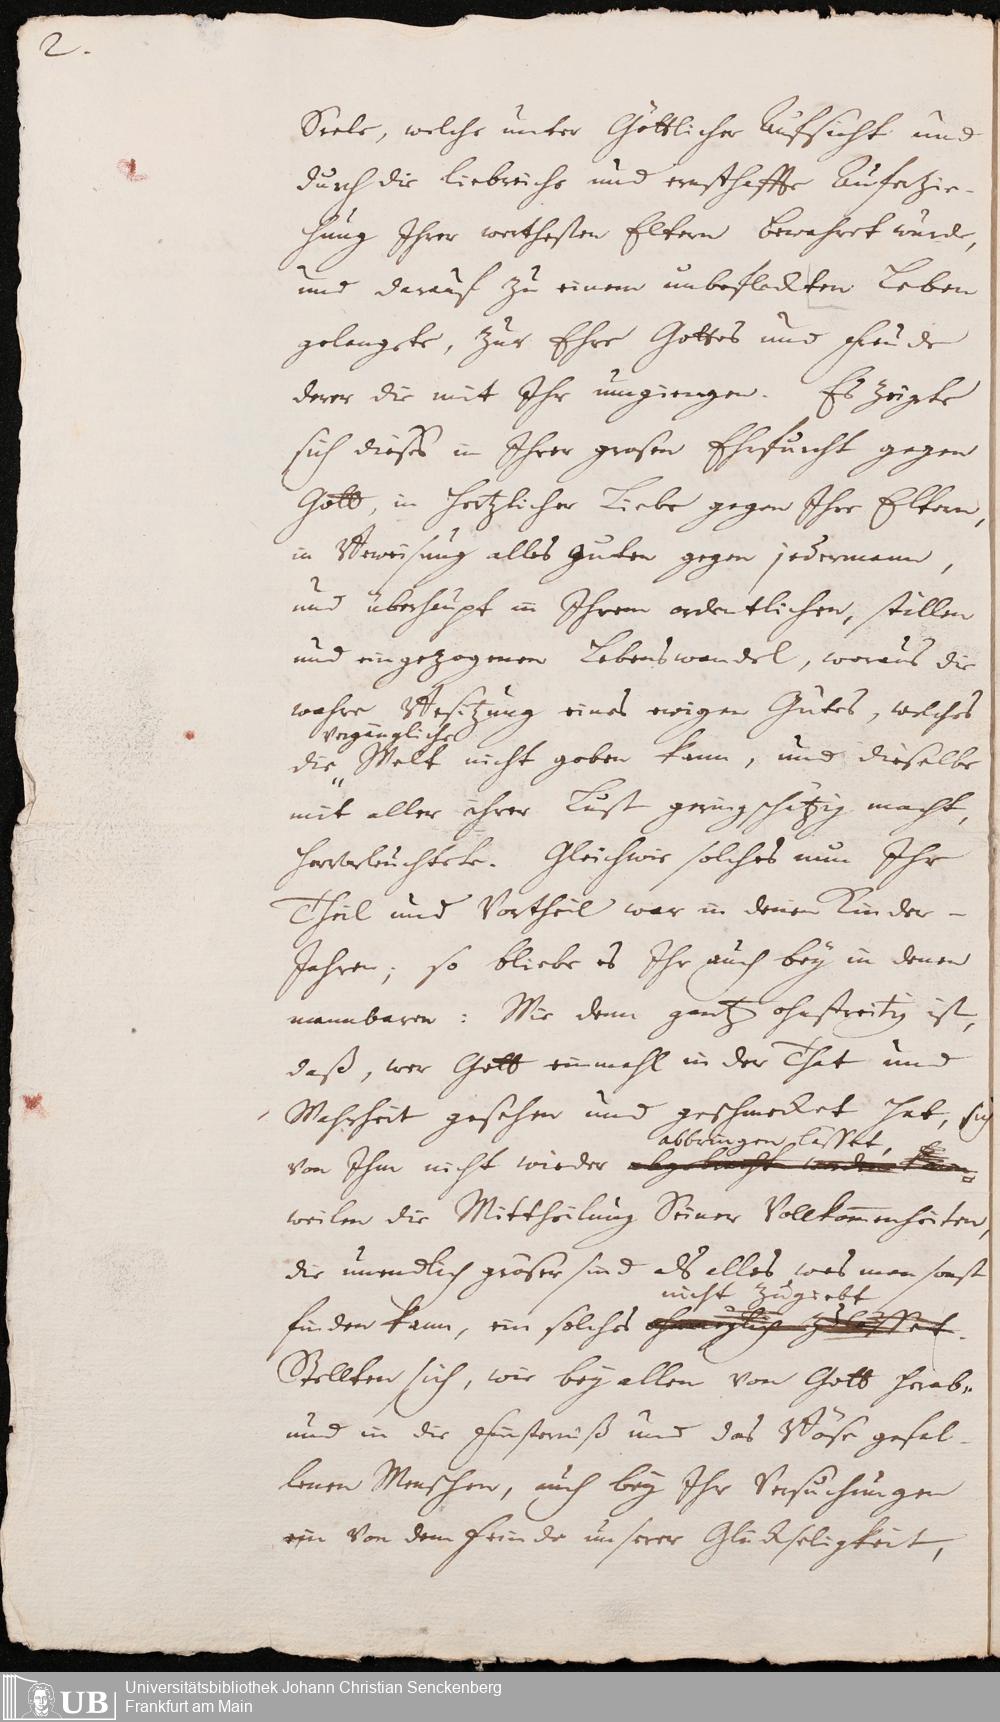 2.
Seele, welche unter Göttlicher Aufsicht und
durch die liebreiche und ernsthaffte Auferzie-
hung Ihrer werthesten Eltern bewahret wurde,
und darauf zu einem unbefleckten Leben
gelangete, zur Ehre Gottes und Freude
derer die mit Ihr umgiengen. Es zeigte
sich dieses in Ihrer grosen Ehrfurcht gegen
Gott, in hertzlicher Liebe gegen Ihre Eltern,
in Beweisung alles guten gegen jedermann,
und überhaupt in Ihrem ordentlichen, stillen
und eingezogenen Lebenswandel, woraus die
wahre Besitzung eines ewigen Gutes, welches
vergängliche
die Welt nicht geben kann, und dieselbe
mit aller ihrer Lust geringschätzig macht,
hervorleuchtete. Gleichwie solches nun Ihr
Theil und Vortheil war in denen Kinder-
Jahren; so bliebe es Ihr auch bey in denen
mannbaren: Wie denn gantz ohnstreitig ist,
daß, wer Gott einmahl in der That und
Wahrheit gesehen und geschmecket hat, sich
abbringen lässet,
von Ihm nicht wieder abgebracht werden kann
weilen die Mittheilung Seiner Vollkommenheiten,
die unendlich gröser sind als alles was man sonst
nicht zugiebt
finden kann, ein solches ohnmöglich zulässet.
Stellten sich, wie bey allen von Gott herab-
und in die Finsterniß und das Böse gefal-
lenen Menschen, auch bey Ihr Versuchungen
ein von dem Feinde unserer Glückseligkeit,
UB
Universitätsbibliothek Johann Christian Senckenberg
Frankfurt am Main